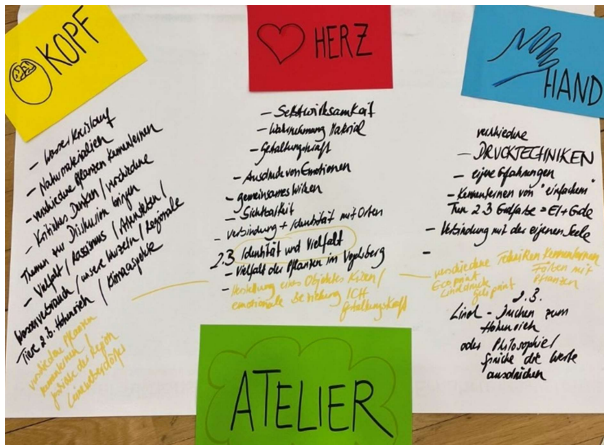 KOPF
- Wasserkreislauf
- Naturmaterialien
- verschiedene Pflanzen kennenlernen
- Kritisches Denken / verschiedene
Themen zur Diskussion bringen
- Vielfalt / Rassismus / Attentäter /
Wasserverbrauch / unsere Wurzeln / Regionale
Tier z.B. Höhenrich / Klimaaspekte
verschiedene Pflanzen
kennenlernen /
der Region
HERZ
- Selbstwirksamkeit
- Wahrnehmung Material
- Gestaltungskraft
- Ausdruck von Emotionen
- gemeinsames Wirken
- Sichtbarkeit
- Verbindung + Identität mit Orten
z.B. Identität und Vielfalt
- Vielfalt der Pflanzen im Vogelsberg
- Herstellung eines Objektes Kissen /
emotionale Beziehung ICH
Gestaltungskraft
HAND
verschiedene
- DRUCKTECHNIKEN
- eigene Erfahrungen
- Kennenlernen von "einfachem"
Tun z.B. Golfarbe = EI + Gole
- Verbindung mit der eigenen Seele
-
verschiedene Techniken kennenlernen
Ecoprint
Färben mit
Pflanzen
Linoldruck
geliprint
z.B.
Linol - Drucken zum
Höhenrich
oder Philosophie /
Sprüche die Werte
ausdrücken
ATELIER